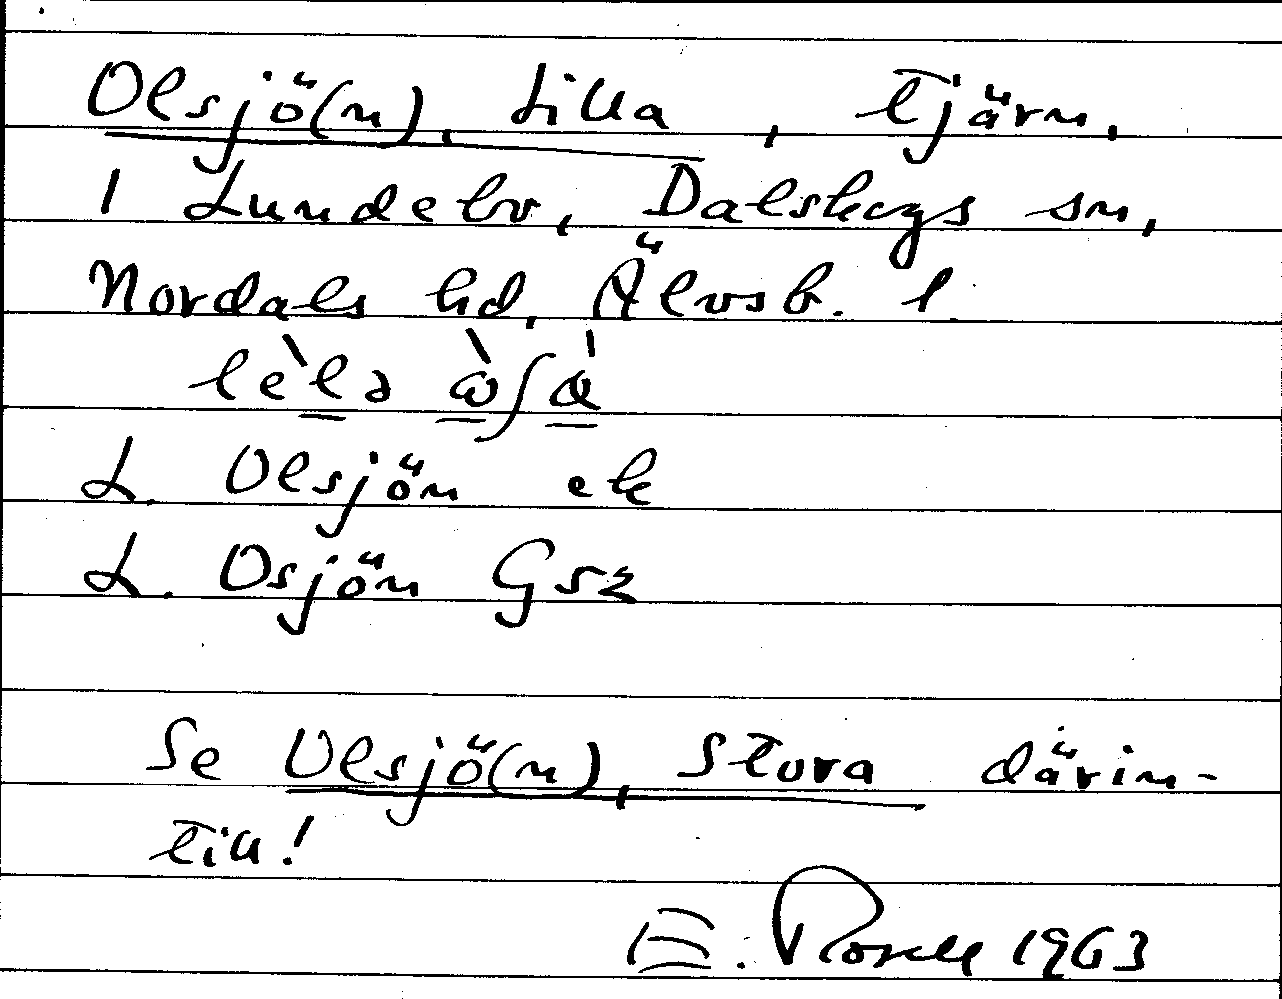 Olsjö(n), Lilla, tjärn,
1 Lundebo, Dalskogs sn,
Nordals hd, Älvsb. l.
L. Olsjön ek
L. Osjön Gsz
Se Olsjö(n), Stora därin-
till!
E. Rosell 1963